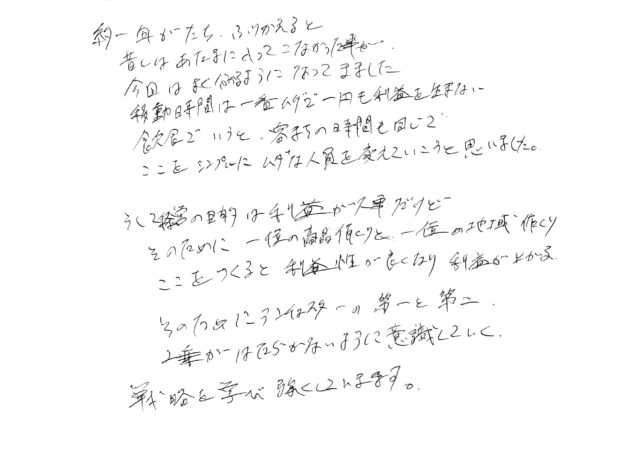 約一年がたち、ふりかえると
昔しはあたまに入ってこなかった事が、
今回はよく分かるようになってきました
移動時間は一番ムダで一円も利益を生まない
飲食でいうと、客まちの時間も同じで
ここをシンプルにムダな人員を変えていこうと思いました。
そして経営の目的は利益が大事だけど
そのために一位の商品作くりと一位の地域作くり
ここをつくると利益性が良くなり利益が上がる
そのためにランチェスターの第一と第二
2乗がはたらかないように意識していく
戦略を学び強くしていきます。